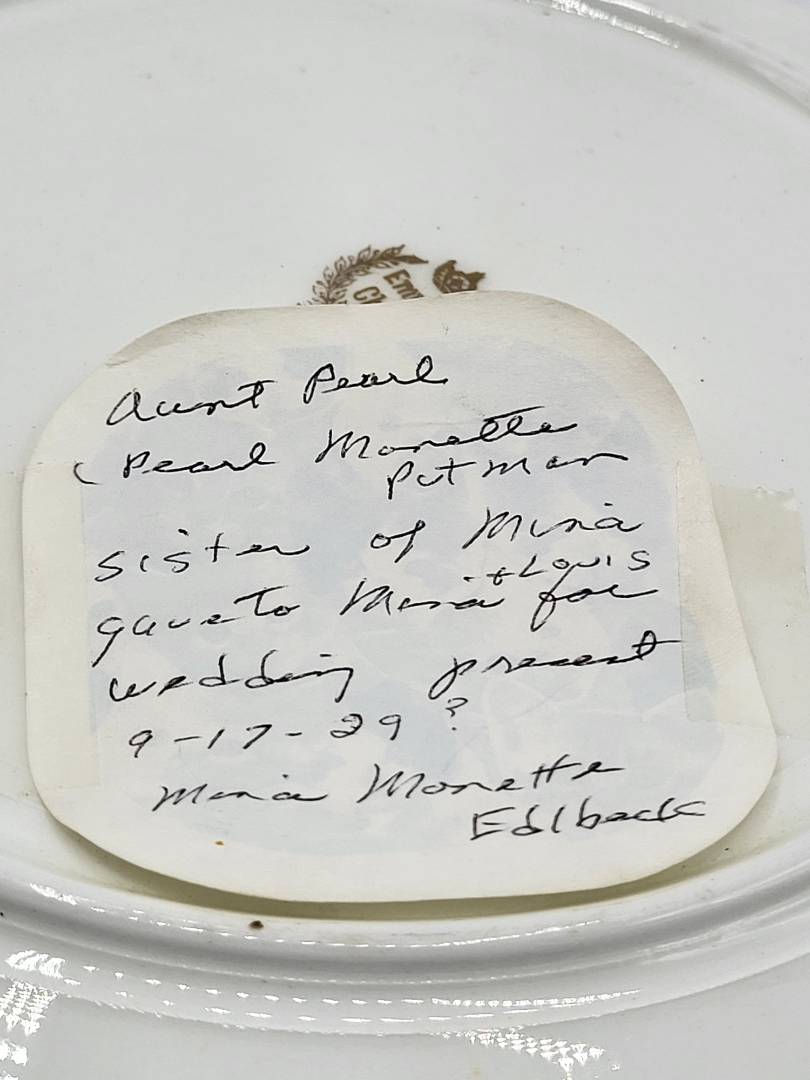 Em
C
Aunt Pearl
( Pearl Monette
Putman
sister of Mina
+ Louis
gave to Mina for
wedding present
9-17-29 ?
Mina Monette
Edlbeck